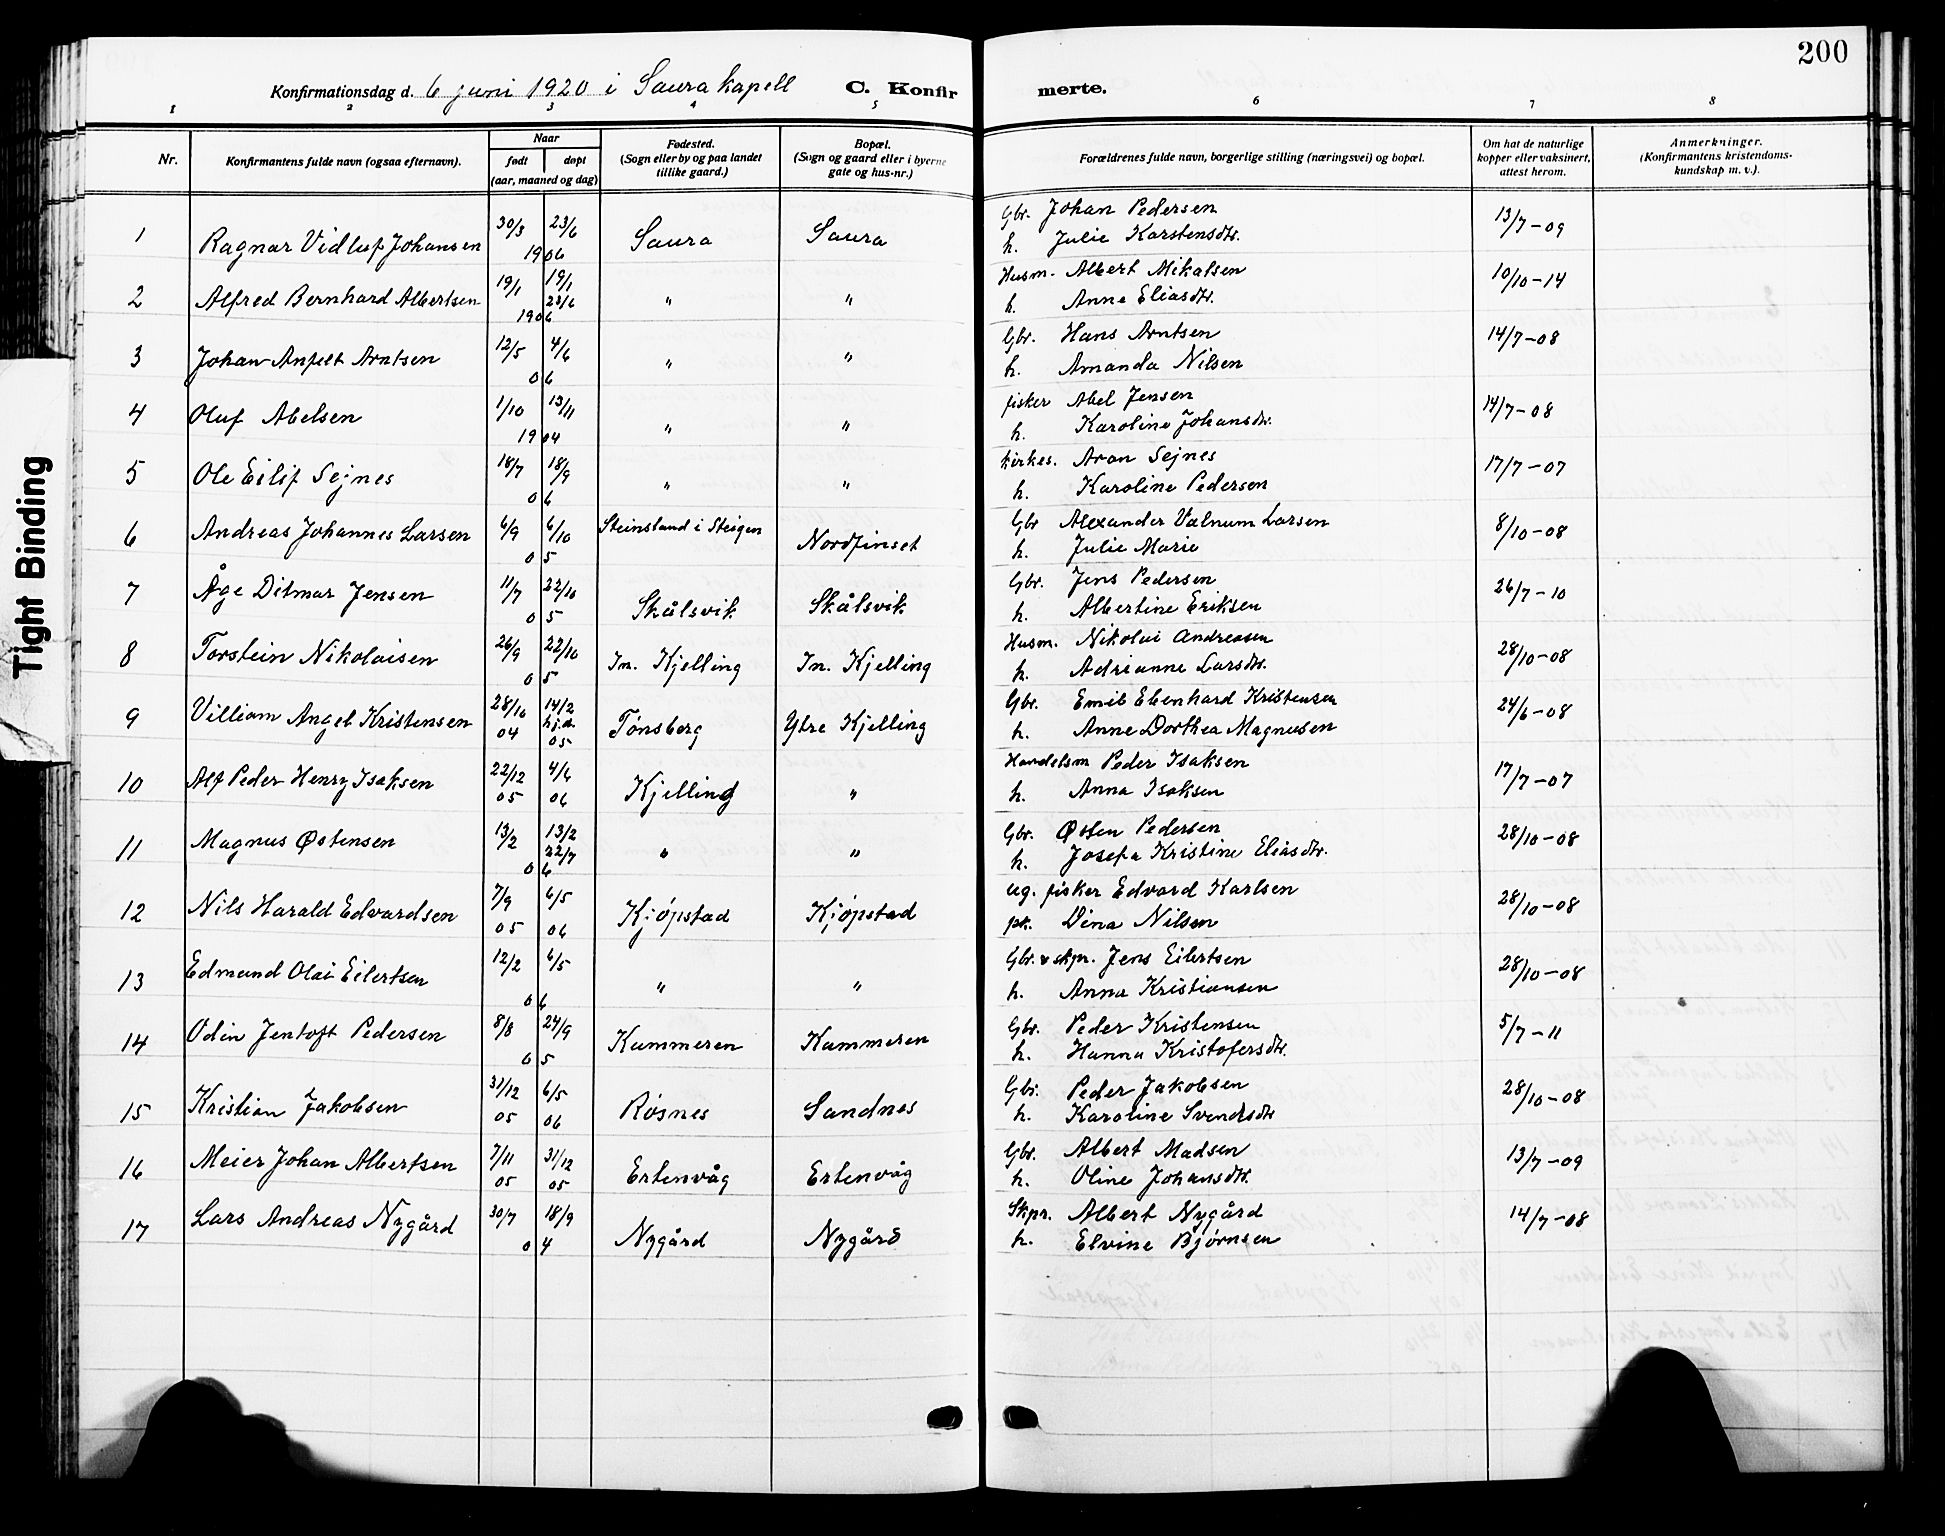 200
Konfirmationsdag d. 6 juni 1920 i Saura kapell C. Konfirmerte.
1 2 3 4 5 6 7 8
Nr. | Konfirmantens fulde navn (ogsaa efternavn). | Naar født døpt (aar, maaned og dag) | Fødested. (Sogn eller by og paa landet tillike gaard.) | Bopæl. (Sogn og gaard eller i byerne gate og hus-nr.) | Forældrenes fulde navn, borgerlige stilling (næringsvei) og bopæl. | Om hat de naturlige kopper eller vaksinert, attest herom. | Anmerkninger. (Konfirmantens kristendomskundskap m. v.).
1 Ragnar Vidluf Johansen 30/3 23/6 1906 Saura Saura Gbr. Johan Pedersen 13/7-09
h. Julie Karstensdtr.
2 Alfred Bernhard Albertsen 19/1 19/1 23/6 1906 " " Husm. Albert Mikalsen 10/10-14
h. Anne Eliasdtr.
3 Johan Anfelt Arntsen 12/5 4/6 06 " " Gbr. Hans Arntsen 14/7-08
h. Amanda Nilsen
4 Oluf Abelsen 1/10 13/11 1904 " " fisker Abel Jensen 14/7-08
h. Karoline Johansdtr.
5 Ole Eilif Sejnes 18/7 18/9 06 " " kirkes. Aron Sejnes 17/7-07
h. Karoline Pedersen
6 Andreas Johannes Larsen 6/9 6/10 05 Steinsland i Steigen Nordfinset Gbr Alexander Valnum Larsen 8/10-08
h. Julie Marie
7 Åge Ditmar Jensen 11/7 22/10 05 Skålsvik Skålsvik Gbr. Jens Pedersen 26/7-10
h. Albertine Eriksen
8 Torstein Nikolaisen 26/9 22/10 05 In. Kjelling In. Kjelling Husm. Nikolai Andreasen 28/10-08
h. Adrianne Larsdtr.
9 Villiam Angel Kristensen 28/10 04 14/2 hj.d. 05 Tønsberg Ytre Kjelling Gbr. Emil Ebenhard Kristensen 24/6-08
h. Anne Dorthea Magnusen
10 Alf Peder Henry Isaksen 22/12 05 4/6 06 Kjelling " Handelsm Peder Isaksen 17/7-07
h. Anna Isaksen
11 Magnus Østensen 13/2 13/2 22/7 06 " " Gbr. Østen Pedersen 28/10-08
h. Josefa Kristine Eliasdtr.
12 Nils Harald Edvardsen 7/9 05 6/5 06 Kjøpstad Kjøpstad ug. fisker Edvard Karlsen 28/10-08
pk. Dina Nilsen
13 Edmund Olai Eilertsen 12/2 6/5 06 " " Gbr. & skpr. Jens Eilertsen 28/10-08
h. Anna Kristiansen
14 Odin Jentoft Pedersen 8/8 24/9 05 Kummeren Kummeren Gbr. Peder Kristensen 5/7-11
h. Hanna Kristofersdtr.
15 Kristian Jakobsen 31/12 05 6/5 06 Røsnes Sandnes Gbr. Peder Jakobsen 28/10-08
h. Karoline Svendsdtr
16 Meier Johan Albertsen 7/11 05 31/12 05 Ertenvåg Ertenvåg Gbr. Albert Madsen 13/7-09
h. Oline Johansdtr.
17 Lars Andreas Nygård 30/7 18/9 04 Nygård Nygård Skpr. Albert Nygård 14/7-08
h. Elvine Bjørnsen
Tight Binding